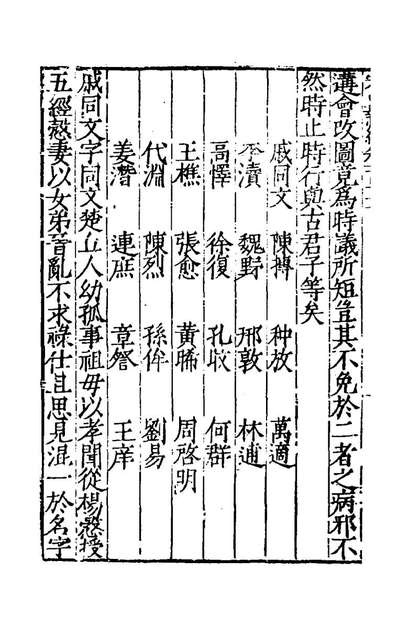 遘會改圖竟爲時議所短豈其不免於二者之病邪不
然時止時行與古君子等矣
戚同文 陳摶 种放 萬適
李瀆 魏野 邢敦 林逋
高懌 徐復 孔旼 何群
王樵 張愈 黃晞 周啓明
代淵 陳烈 孫侔 劉易
姜潛 連庶 章詧 王庠
戚同文字同文楚丘人幼孤事祖母以孝聞從楊慤授
五經慤妻以女弟晉亂不求祿仕且思見混一於名字